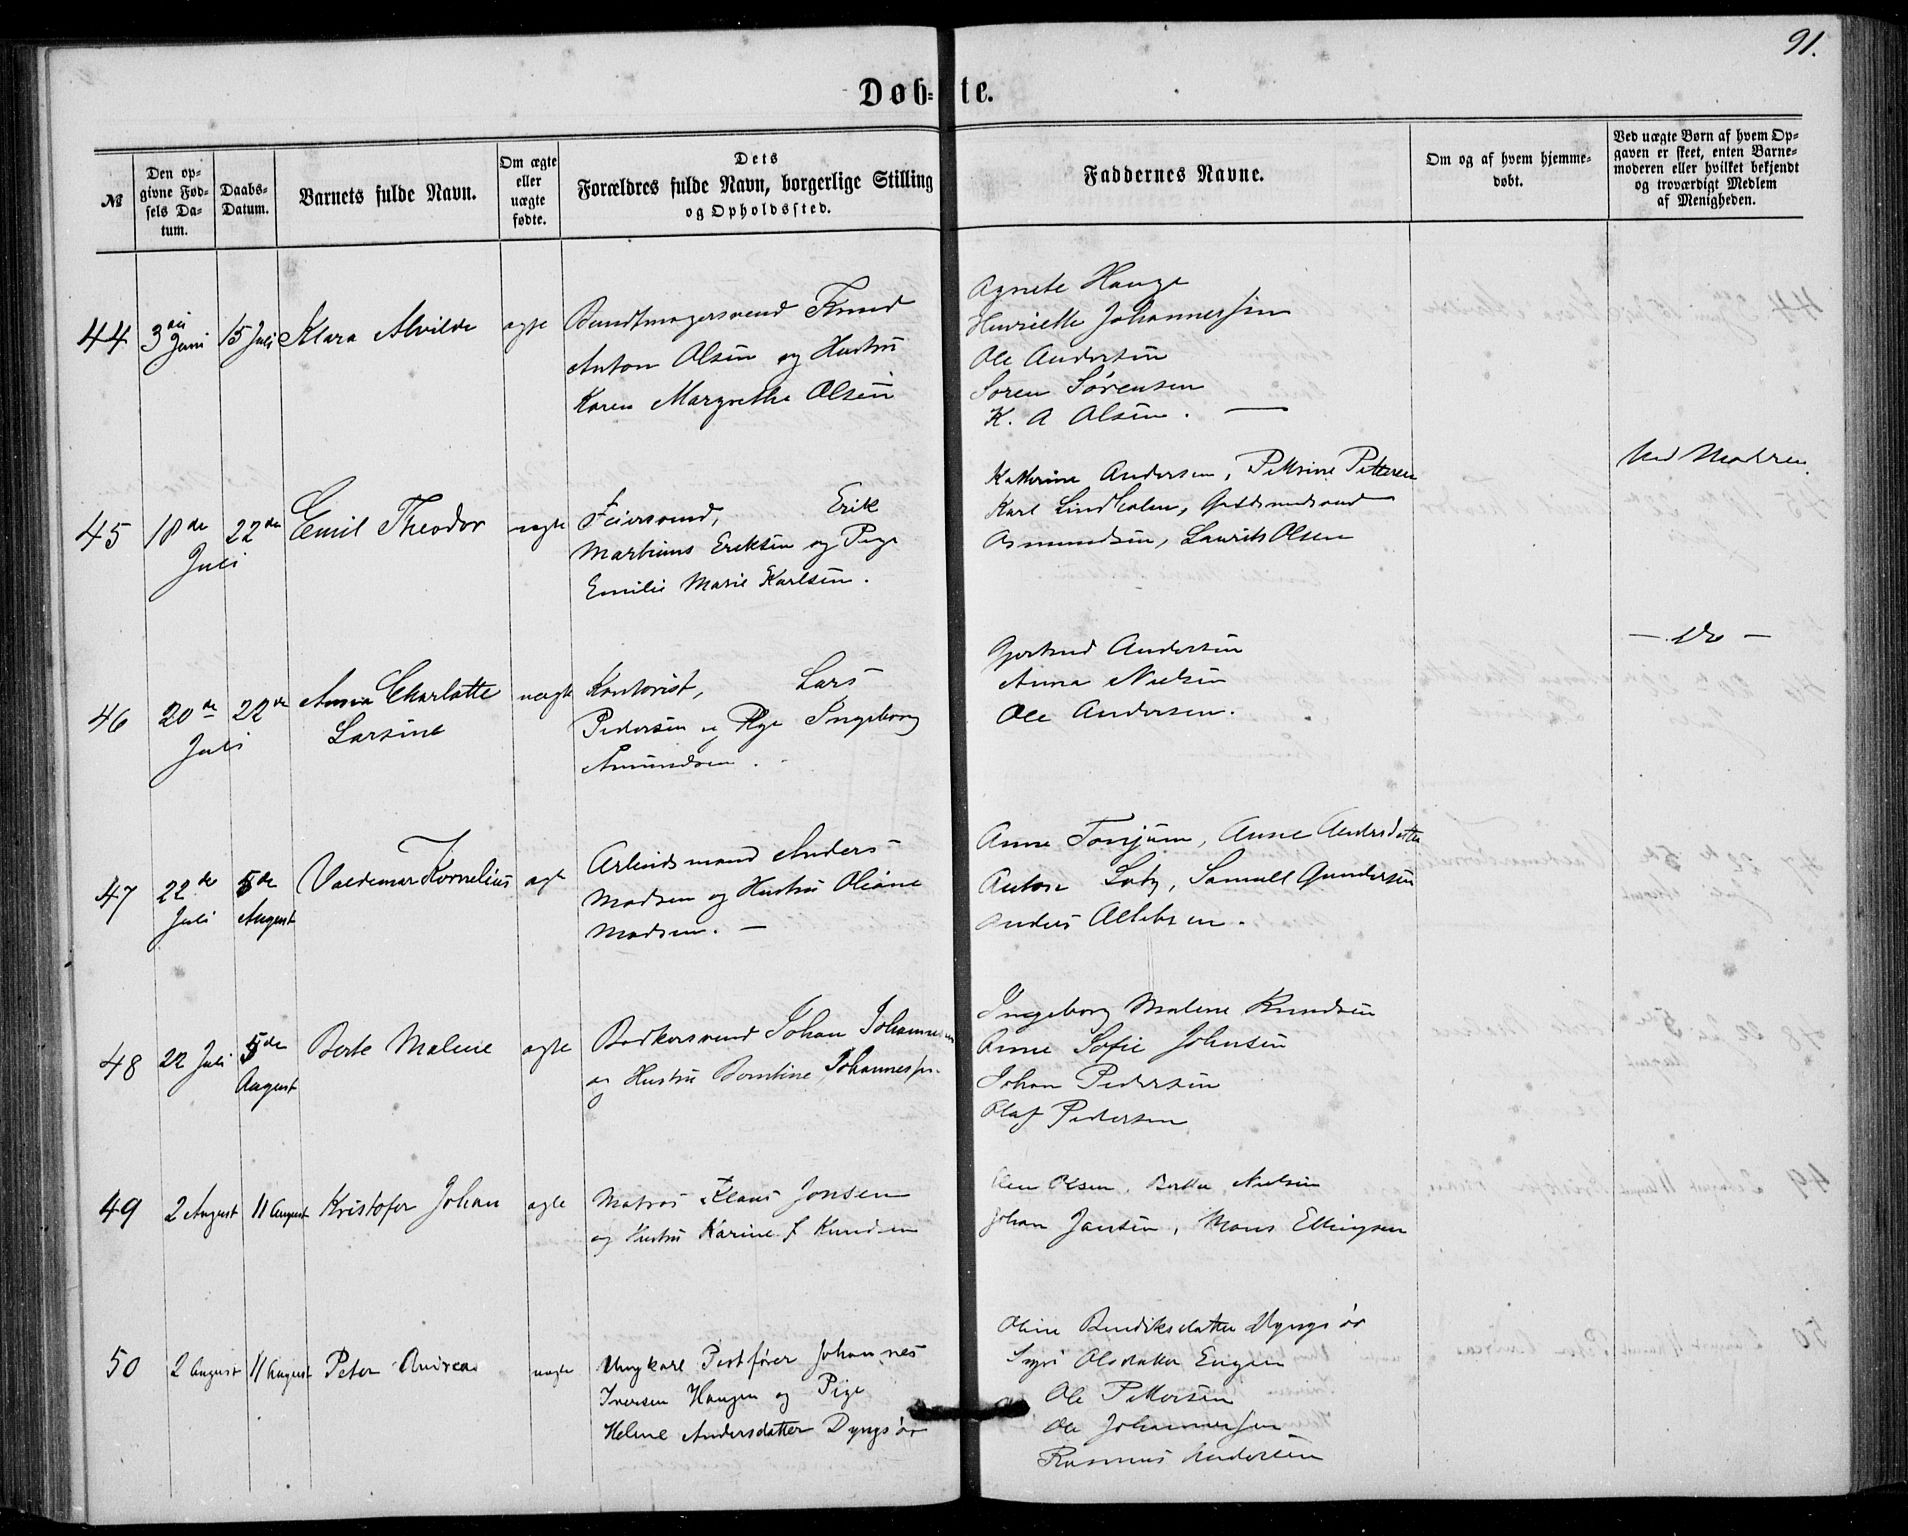 91.
Døb-te.
№
Den op-
givne Fød-
sels Da-
tum.
Daabs-
Datum.
Barnets fulde Navn.
Om ægte
eller
uægte
fødte.
Dets
Forældres fulde Navn, borgerlige Stilling
og Opholdssted.
Faddernes Navne.
Om og af hvem hjemme-
døbt.
Ved uægte Børn af hvem Op-
gaven er skeet, enten Barne-
moderen eller hvilket bekjendt
og troværdigt Medlem
af Menigheden.
44 3die Juni 15 Juli Klara Alvilde ægte
Bundtmagersvend Knud
Anton Olsen og Hustru
Karen Margrethe Olsen
Agnete Hauge
Henriette Johannessen
Ole Andersen
Søren Sørensen
K. A Olsen. —
45 18de Juli 22de Emil Theodor uægte
Feiersvend, Erik
Martinius Eriksen og Pige
Emilie Marie Karlsen.
Katherine Andersen, Pettrine Petteren
Karl Lindholm, Guldsmedsvend
Asmundsen, Laurits Olsen
Ved Moderen.
46 20de Juli 22de Anna Charlotte
Larsine
uægte
Kontorist, Lars
Pedersen og Pige Ingeborg
Amundsen.
Gjertrud Andersen
Anna Nielsen
Ole Andersen.
— Do —
47 22de Juli 5de August Valdemar Kornelius ægt
Arbeidsmand Anders
Madsen og Hustru Oliane
Madsen. —
Anne Tonjum, Anne Andersdatter
Anton, Samuel Gundersen
Anders
48 22 Juli 5de August Berte Malene ægte
Bødkersvend Johan Johannesen
og Hustru Berntine Johannessen.
Ingeborg Malene Knudsen
Anne Sofie Johnsen
Johan Pedersen
Olaf Pedersen
49 2 August 11 August Kristofer Johan ægte
Matros Klaus Jonsen
og Hustru Karine f Knudsen
Olsen, Berthe Nielsen
Johan Jansen, Mons Ellingsen
50 2 August 11 August Peter Andreas uægte
Ungkarl Postfører Johannes
Iversen Haugen og Pige
Helene Andersdatter Dyngsør
Oline Bendiksdatter Dyngsør
Olsdatter Engen
Ole Pettersen
Ole Johannessen
Rasmus Andersen